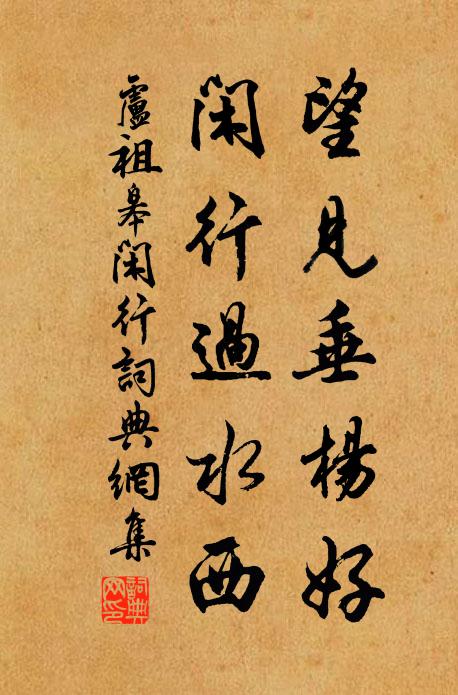 望見垂楊好
閑行過水西
盧祖皋閑行詞典網集
詞典網印